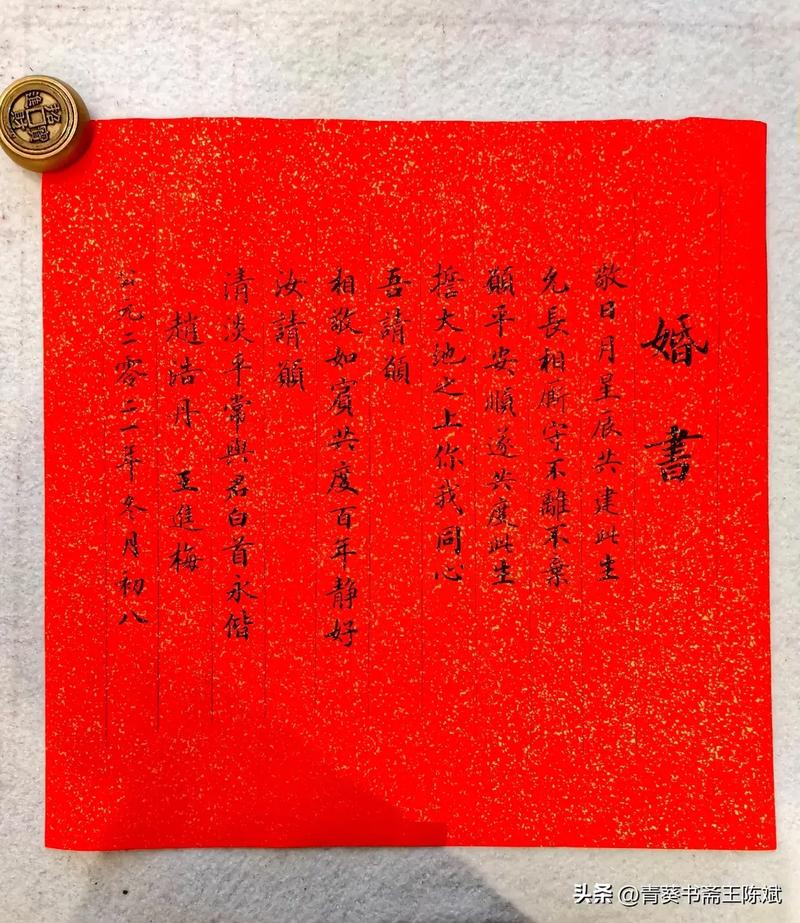 婚書
敬日月星辰共建此生
允長相廝守不離不棄
願平安順遂共度此生
誓大地之上你我同心
吾請願
相敬如賓共度百年静好
汝請願
清淡平常與君白首永偕
趙浩丹 王進梅
公元二零二一年冬月初八
招財進寶
头条 @青葵书斋王陈斌